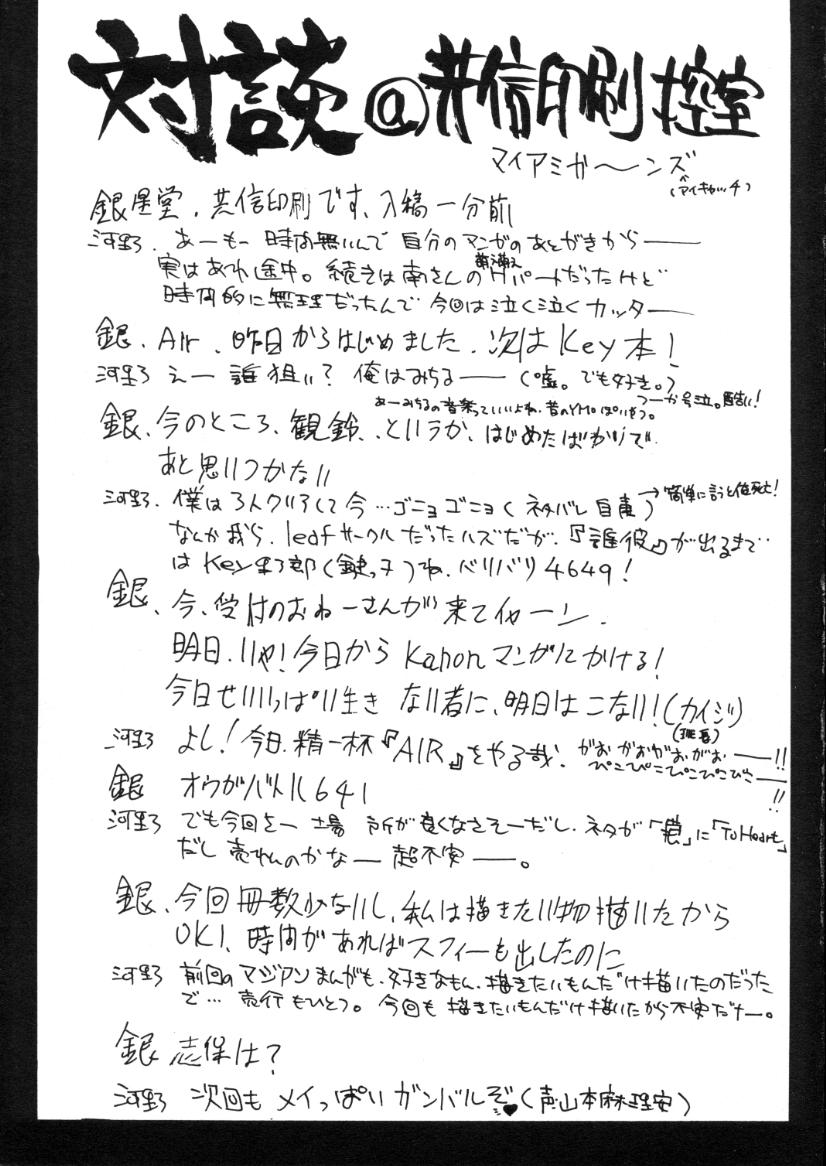 対談@共信印刷控室
マイアミガ〜ンズ
(アイキャッチ)
銀星堂、共信印刷です、入稿一分前
河野、あーもー時間無いんで自分のマンガのあとがきから――
実はあれ途中。続きは南さんのHパートだったけど
時間的に無理だったんで今回は泣く泣くカッター――
銀、Air、昨日からはじめました、次はKey本!
河野 えー誰狙い?俺はみちる――(嘘。でも好き。)
つーか号泣。酷い!
あーみちるの音楽っていいよね、昔のYMOっぽいもう。
銀、今のところ、観鈴、というか、はじめたばかりで
あと思いつかない
河野、僕は3人クリアして今…ゴニョゴニョ(ネタバレ自粛)→簡単に言うと俺死亡!
なんか我ら、leafサークルだったハズだが、『誰彼』が出るまで
はKey野郎(鍵っ子)ね、バリバリ4649!
銀、今、受付のおねーさんが来てイヤーン、
明日、いや!今日からKanonマンガにかける!
今日せいいっぱい生きない者に、明日はこない!(カイジ)
(班長)
河野 よし!今日、精一杯『AIR』をやる哉、がおがおがおがお――!!
ぴこぴこぴこぴこぴこ――!!
銀 オウガバトル64!
河野 でも今回さー 場所が良くなさそーだし、ネタが「痕」に「ToHeart」
だし売れんのかなー超不安――。
銀、今回冊数少ないし、私は描きたい物描いたから
OK!、時間があればスフィーも出したのに
河野 前回のマジアンまんがも、好きなもん、描きたいもんだけ描いたのだった
で…売行もひとつ。今回も描きたいもんだけ描いたから不安だナー。
銀 志保は?
河野 次回もメイっぱいガンバルぞ♥(声山本麻理安)